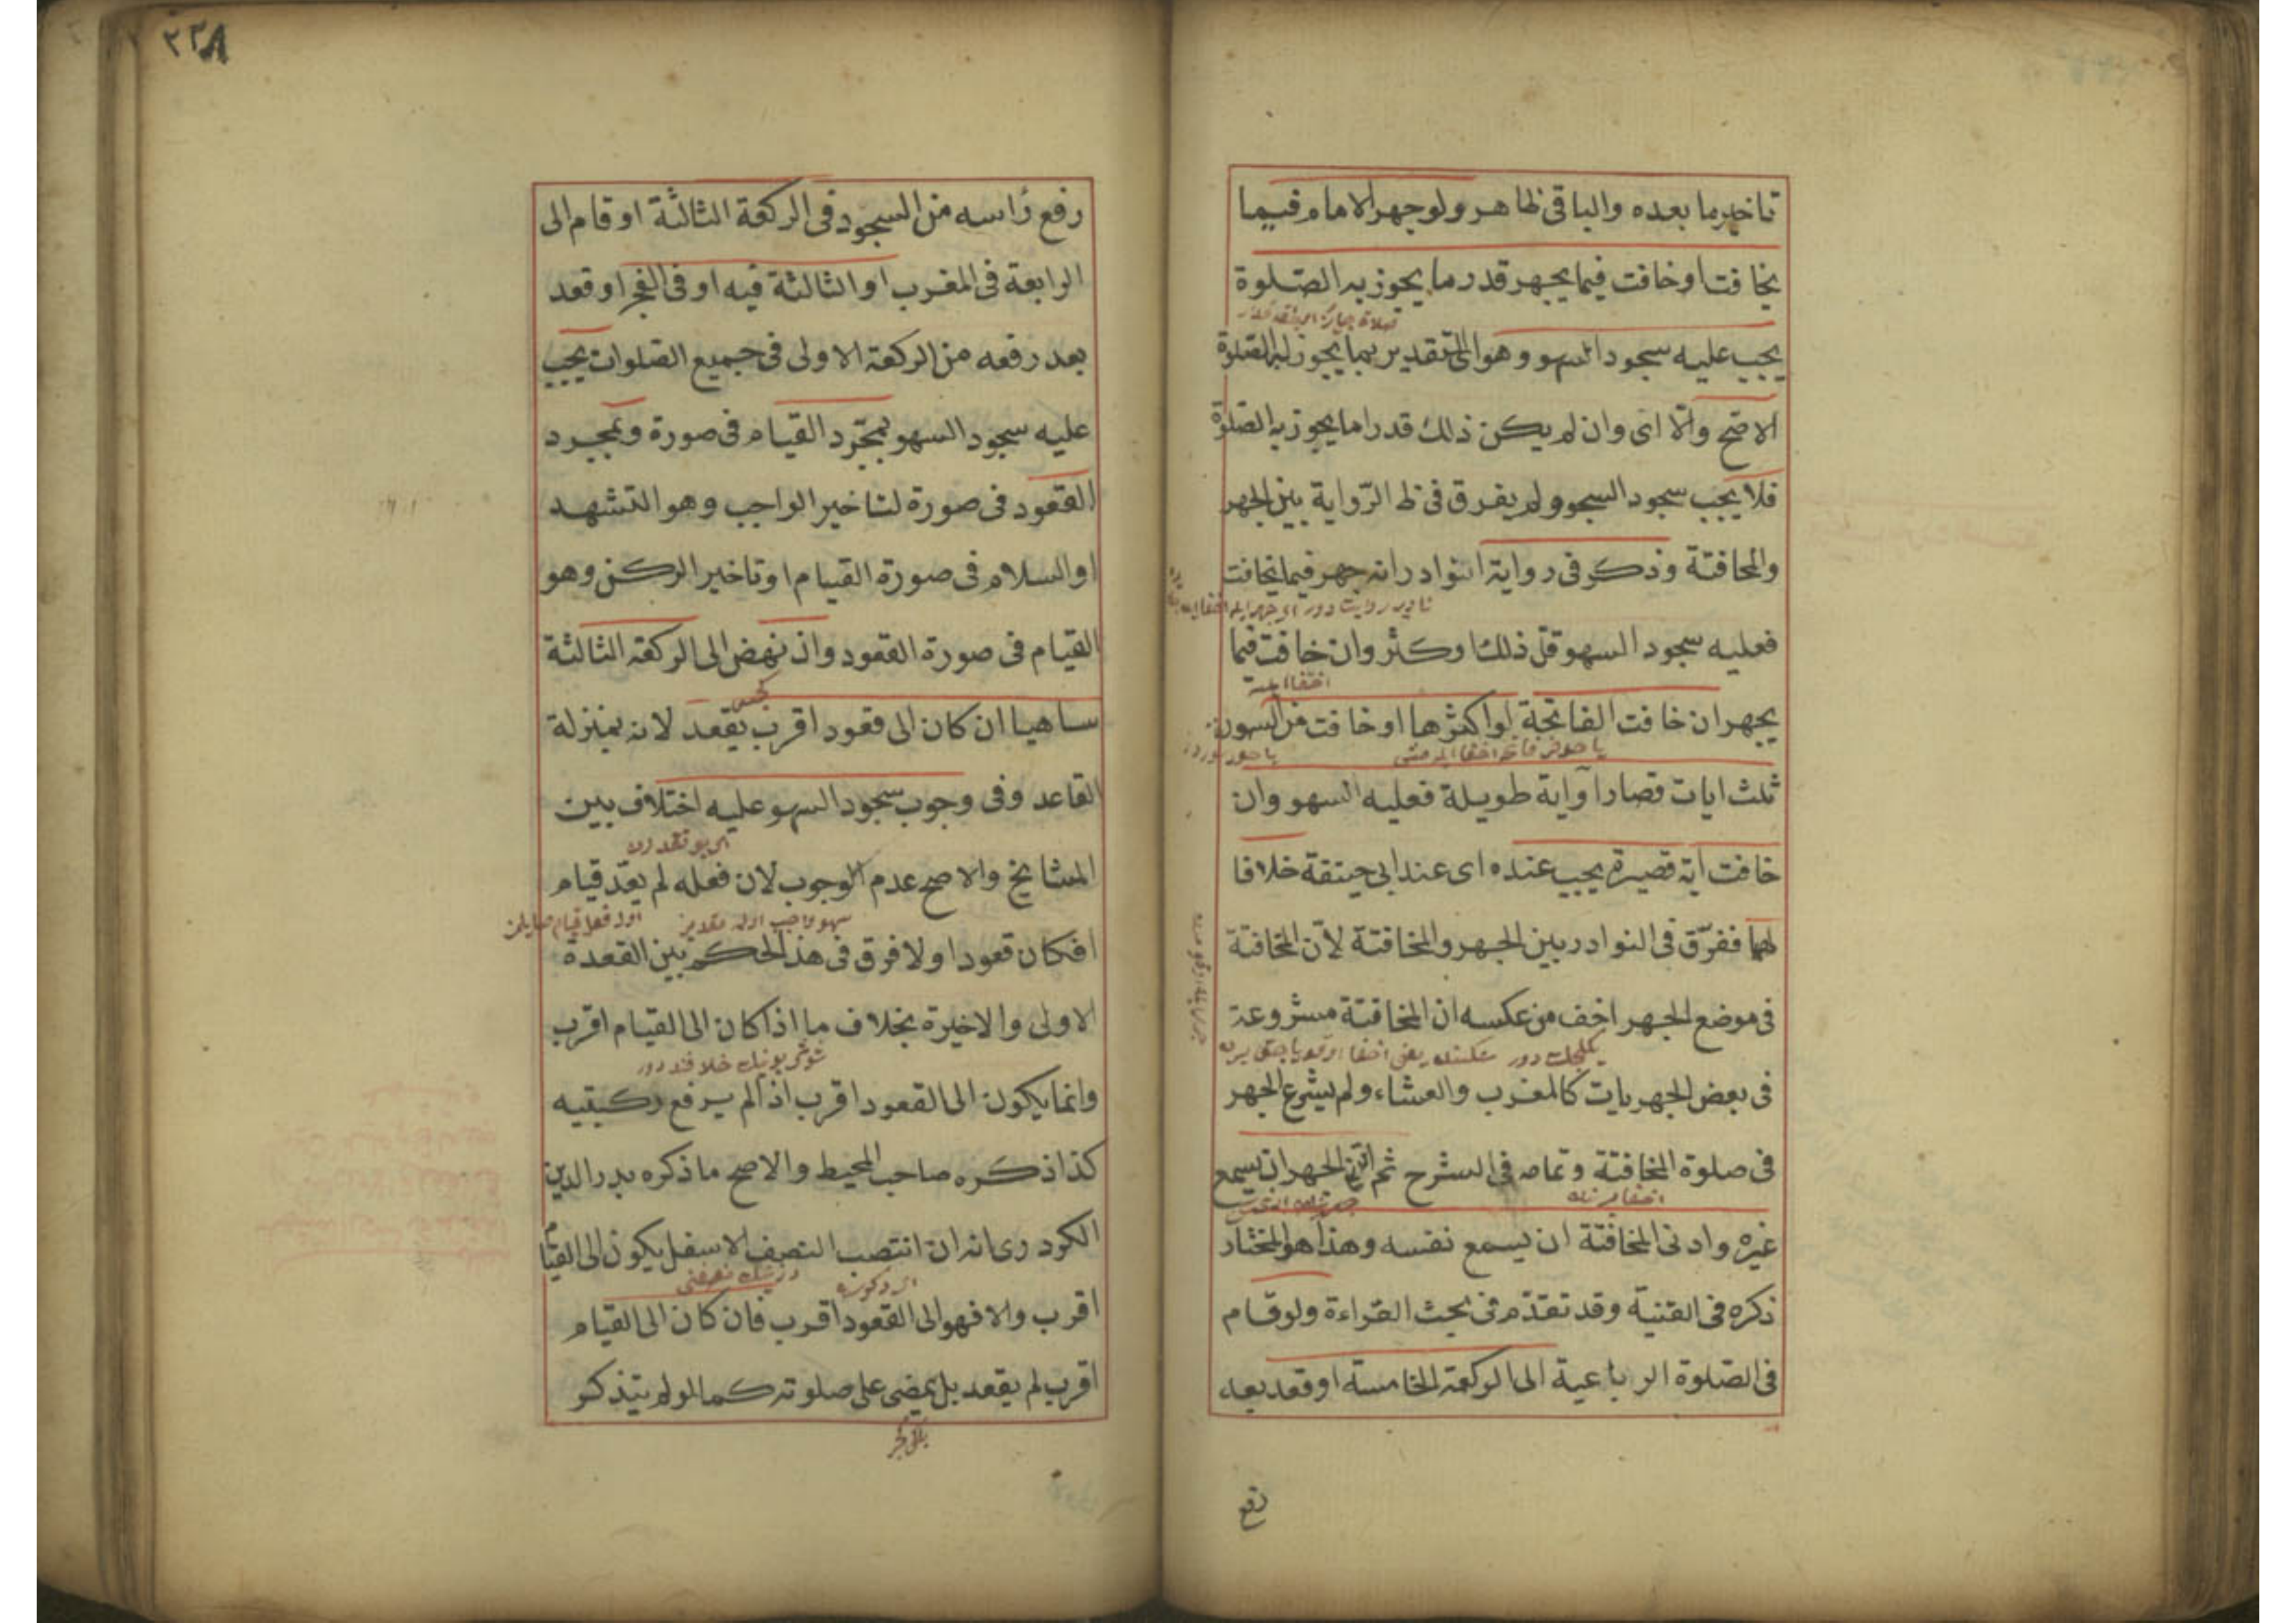 تاخير ما بعده والباقى ظاهر ولو جهر الامام فيما
يخافت او خافت فيما يجهر قدر ما يجوز به الصلوة
يجب عليه سجود السهو وهو اى التقدير بما يجوز به الصلوة
الاصح والا اى وان لم يكن ذلك قدر اما يجوز به الصلوة
فلا يجب سجود السجوو ولم يفرق فى ظ الرواية بين الجهر
والمخافتة وذكر فى رواية النوادر انه جهر فيما يخافت
فعليه سجود السهو قل ذلك او كثر وان خافت فيما
يجهر ان خافت الفاتحة او اكثرها او خافت من السورة
ثلث ايات قصار او اية طويلة فعليه السهو وان
خافت اية قصيرة يجب عنده اى عند ابى حنيفة خلافا
لهما ففرّق فى النوادر بين الجهر والمخافتة لان المخافتة
فى موضع الجهر اخف من عكسه ان المخافتة مشروعة
فى بعض الجهريات كالمغرب والعشاء ولم يشرع الجهر
فى صلوة المخافتة وتمامه فى الشرح ثم ادنى الجهر ان يسمع
غيره وادنى المخافتة ان يسمع نفسه وهذا هو المختار
ذكره فى القنية وقد تقدّم فى بحث القراءة ولو قام
فى الصلوة الرباعية الى الركعة الخامسة او قعد بعد
رفع
٢٣٨
رفع رأسه من السجود فى الركعة الثالثة او قام الى
الرابعة فى المغرب او الثالثة فيه او فى الفجر او قعد
بعد رفعه من الركعة الاولى فى جميع الصلوات يجب
عليه سجود السهو بمجرّد القيام فى صورة وبمجرد
القعود فى صورة لتاخير الواجب وهو التشهد
او السلام فى صورة القيام او تاخير الركن وهو
القيام فى صورة القعود واذ نهض الى الركعة الثالثة
ساهيا ان كان الى قعود اقرب يقعد لانه بمنزلة
القاعد وفى وجوب سجود السهو عليه اختلاف بين
المشايخ والاصح عدم الوجوب لان فعله لم يعدّ قيام
افكان قعودا ولا فرق فى هذ الحكم بين القعدة
الاولى والاخيرة بخلاف ما اذا كان الى القيام اقرب
وانما يكون الى القعود اقرب اذ الم يرفع ركبتيه
كذا ذكره صاحب المحيط والاصح ما ذكره بدر الدين
الكردرى انه ان انتصب النصف الاسفل يكون الى القيام
اقرب والا فهو الى القعود اقرب فان كان الى القيام
اقرب لم يقعد بل يمضى على صلوته كما لو لم يتذكر